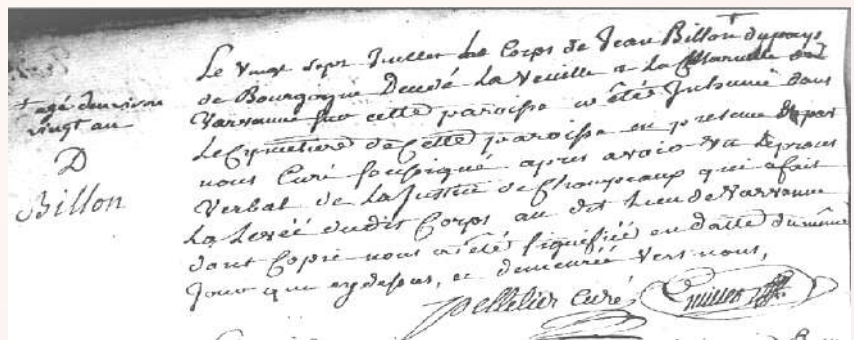 + agé denviron
vingt an
D
Billon
Le Vingt sept Juillet le Corps de Jean Billon + du pays
de Bourgogne Decedé La Veuille a La
Varvanne sur cette paroisse a êté Inhumé dans
Le Cymetiere de Cette paroisse en presence par
nous Curé soussigné apres avoir vu Le proces
Verbal de La Justice de Champeaux qui a fait
La Levée dudit Corps au dit Lieu de Varvanne
dont Copie nous a êté signifiée en datte du même
Jour que cy dessus, et demeurée Vers nous,
Pelletier Curé